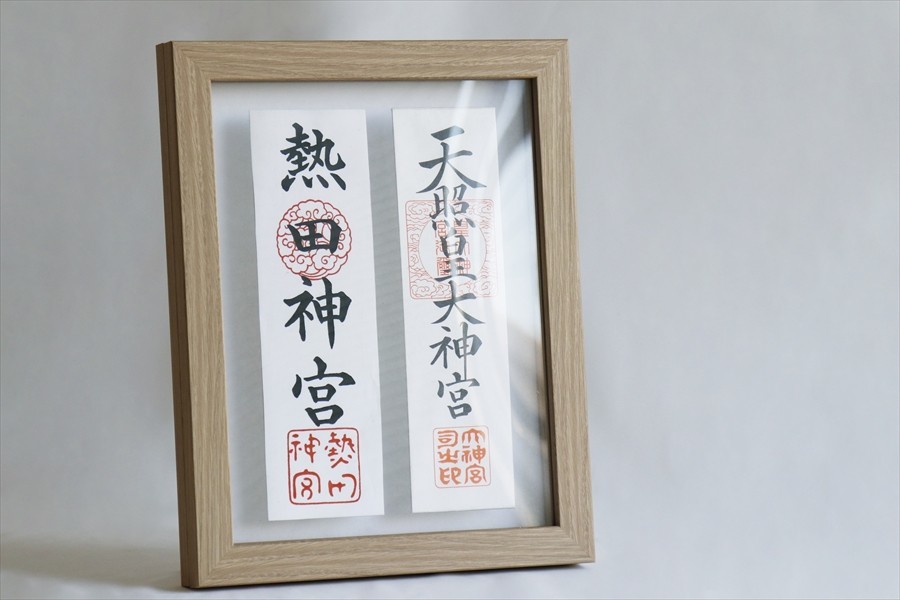 天照皇大神宮
大神宮
司之印
熱田神宮
熱田
神宮